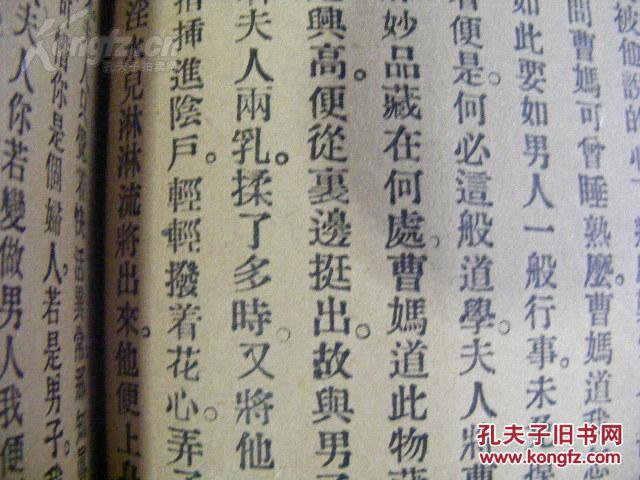 被他說的
問曹媽可曾睡熟麼曹媽道我怎
如此 如男人一般行事。未及
着便是。何必這般道學。夫人將曹
妙品藏在何處。曹媽道此物
興高。便從裏邊挺出。故與男
夫人兩乳。揉了多時。又將他
指插進陰戶。輕輕撥着花心。弄
淫水兒淋淋流將出來。他便上
快活異常那知
你是個婦人。若是男子。我
夫人你若變做男人我便
Kongfz.com
孔夫子拍卖网
孔夫子旧书网
KONGFZ.COM